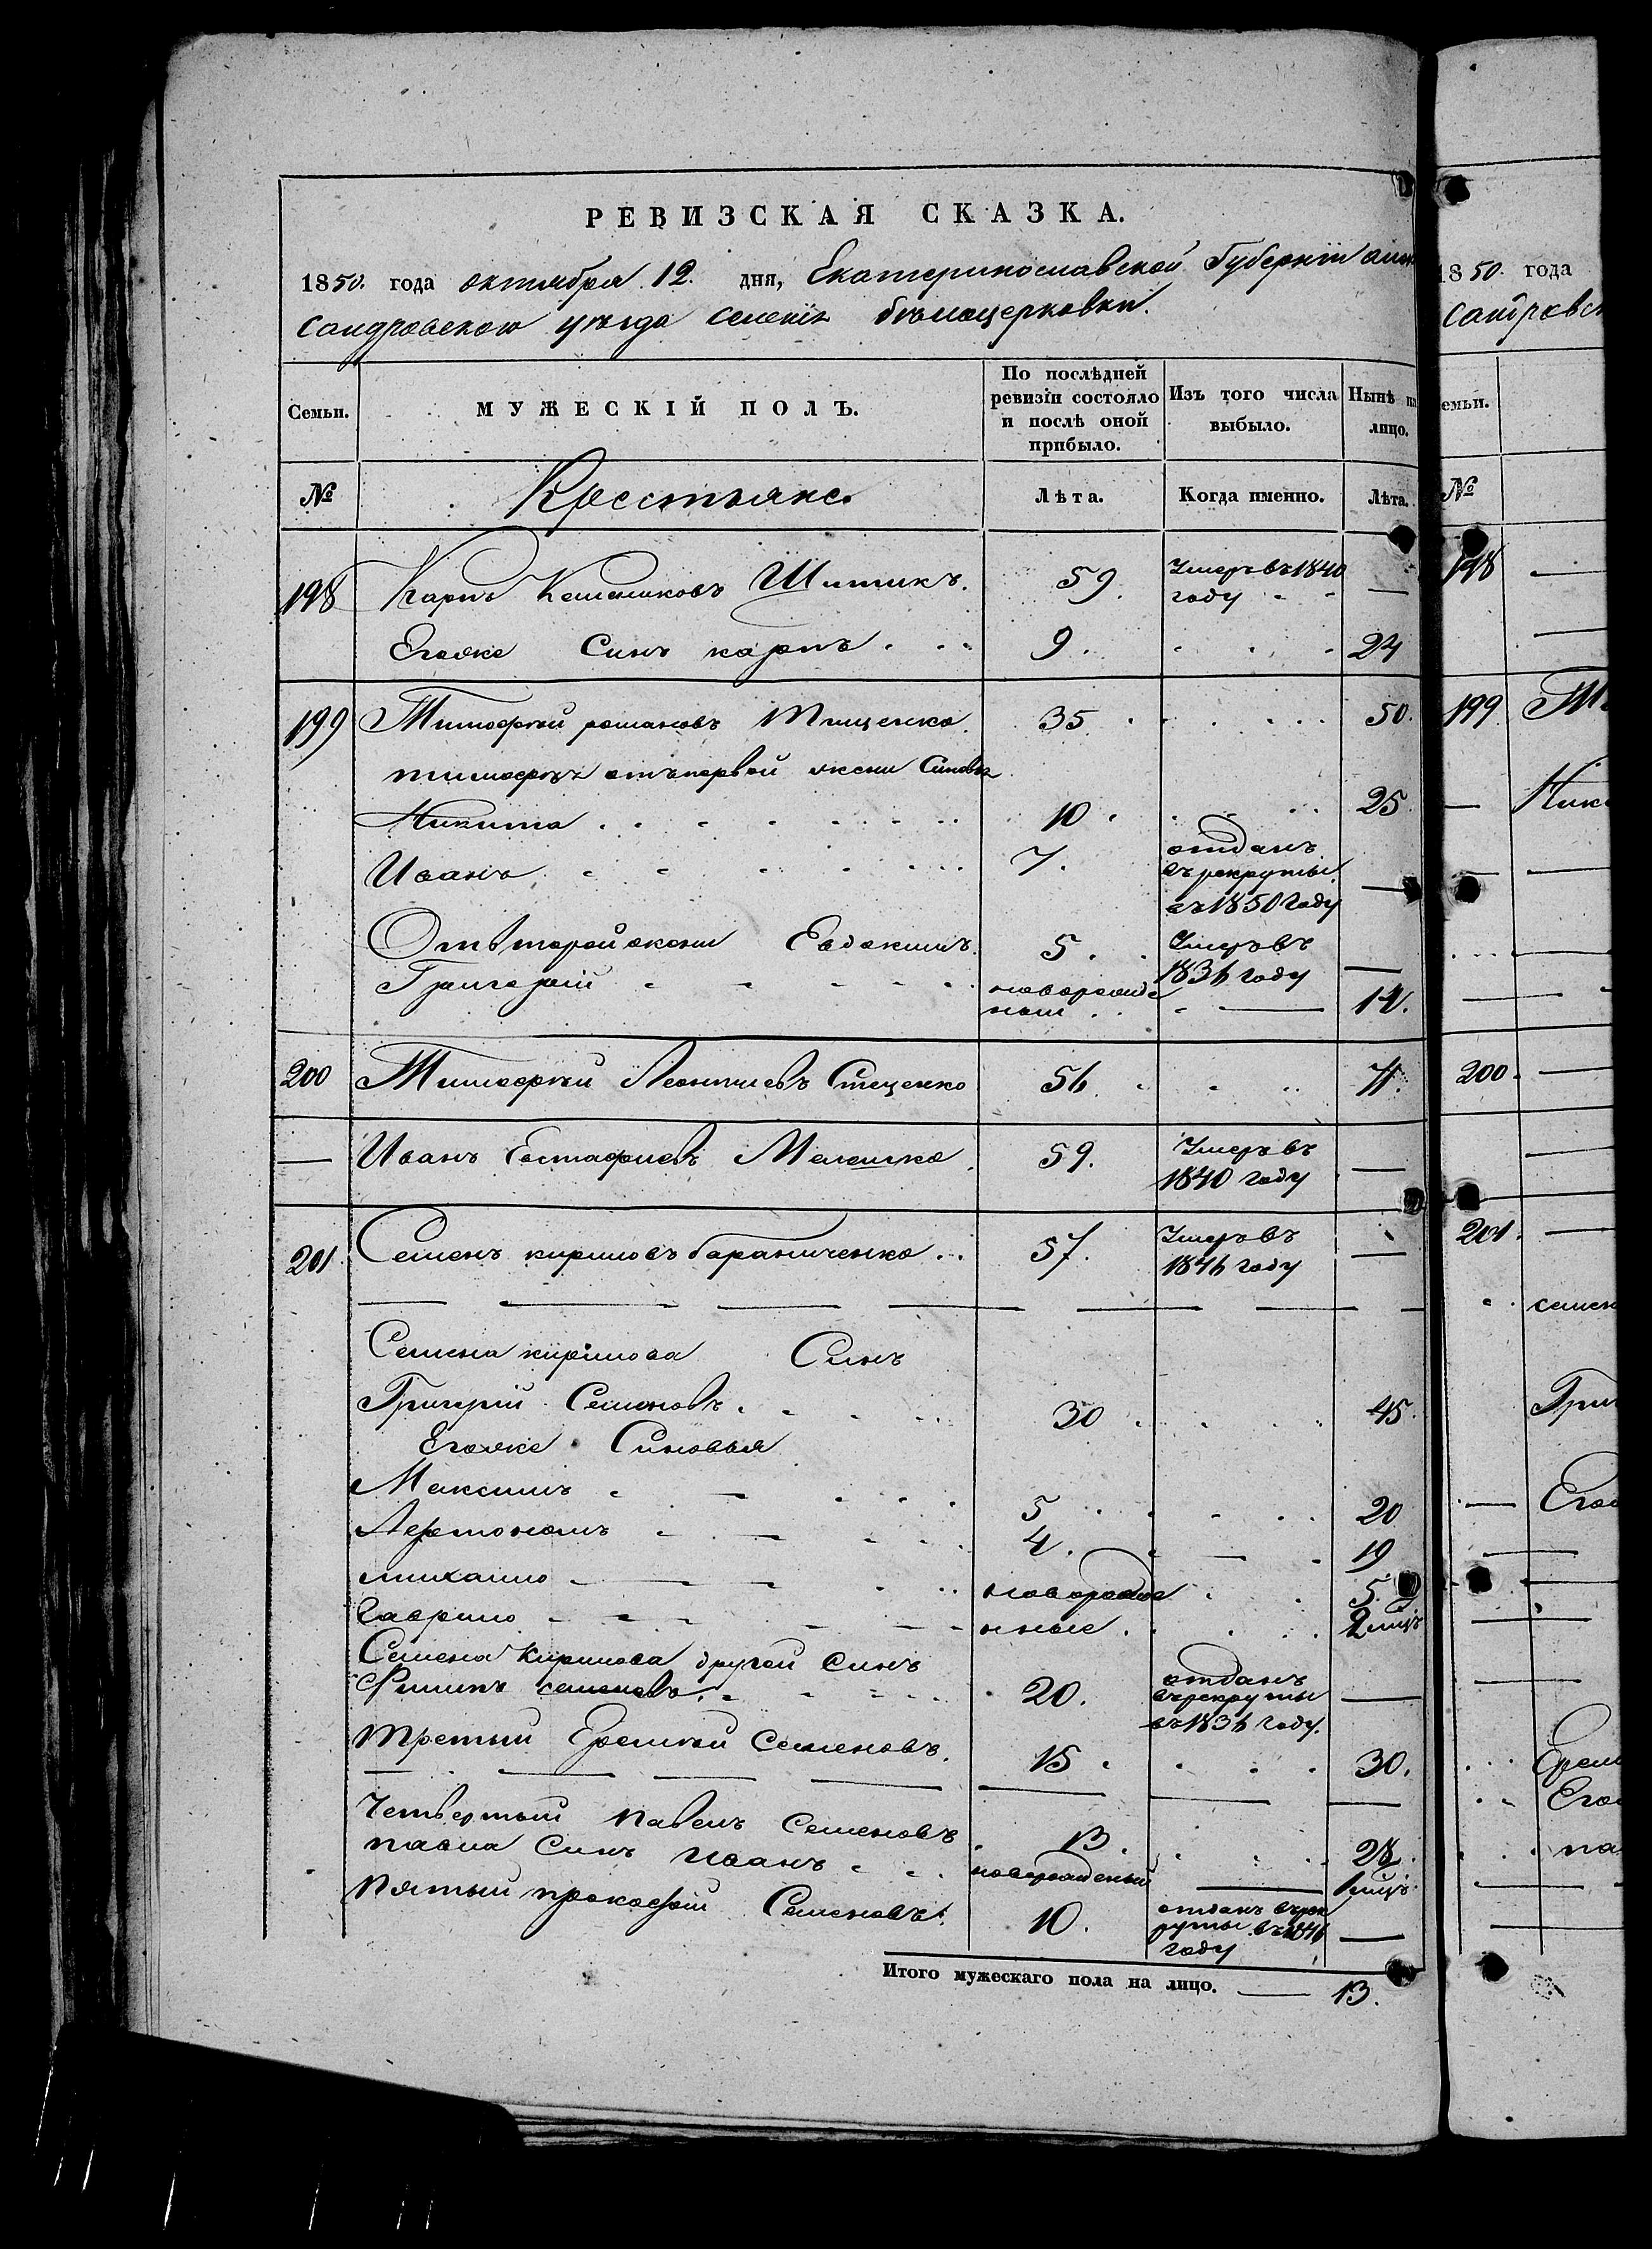 РЕВИЗСКАЯ СКАЗКА.
1850. года октября 12. дня, Екатеринославской Губерніи алек
сандровскаго уѣзда селенія бѣлоцерковки.
Семьи. МУЖЕСКІЙ ПОЛЪ. По послѣдней ревизіи состояло и послѣ оной прибыло. Изъ того числа выбыло. Нынѣ на лицо.
№ Крестьяне Лѣта. Когда именно. Лѣта.
198 Карпъ Шитикъ. 59. Умеръ въ 1840 году —
Егоже Синъ карпъ 9. 24
199 Тимофѣй романовъ Тищенко 35. 50.
тимофѣя отъ первой жени Синовья
Никита 10. 25
Иванъ 7. отданъ въ рекруты въ 1850 году —
Отъ второй жени Евдокимъ 5. Умеръ въ 1836 году —
Григорій новорожденой — 14.
200 Тимофѣй Леонтиевъ Стеценко 56. 71.
— Иванъ Евстафиевъ Мелешко 59. Умеръ въ 1840 году —
201 Семенъ кириловъ бараниченко 57. Умеръ въ 1846 году —
Семена кирилова Синъ
Григорій Семеновъ 30 45.
Егоже Синовья
Максимъ 5 20
Артономъ 4. 19
михаило новорожде 5.
Гаврило нные. 2 мцъ
Семена Кирилова другой синъ
Филипъ семеновъ 20. отданъ въ рекруты въ 1836 году. —
Третый Еремѣй Семеновъ. 15 30.
Четвертый Павелъ Семеновъ 13. 28.
павла Синъ Иванъ новорожденый — 1 мцъ
Пятый прокофій Семеновъ. 10. отданъ въ рекруты въ 1846 году —
Итого мужескаго пола на лицо. — 13.
1850 года
сандровск
емьи.
№
198 —
199
Ник
200. —
201. —
семен
Григ
Егож
Ерем
Егож
па